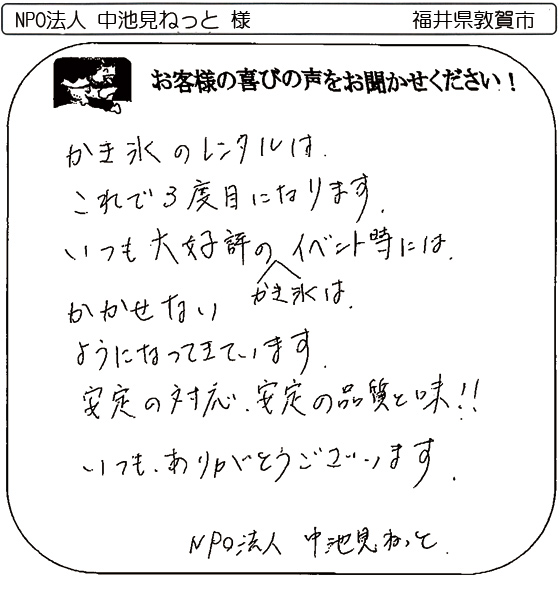 NPO法人 中池見ねっと 様 福井県敦賀市
お客様の喜びの声をお聞かせください！
かき氷のレンタルは.
これで3度目になります.
いつも大好評の イベント時には.
かき氷は.
かかせない
ようになってきています.
安定の対応、安定の品質と味!!
いつも、ありがとうございます.
NPO法人 中池見ねっと.